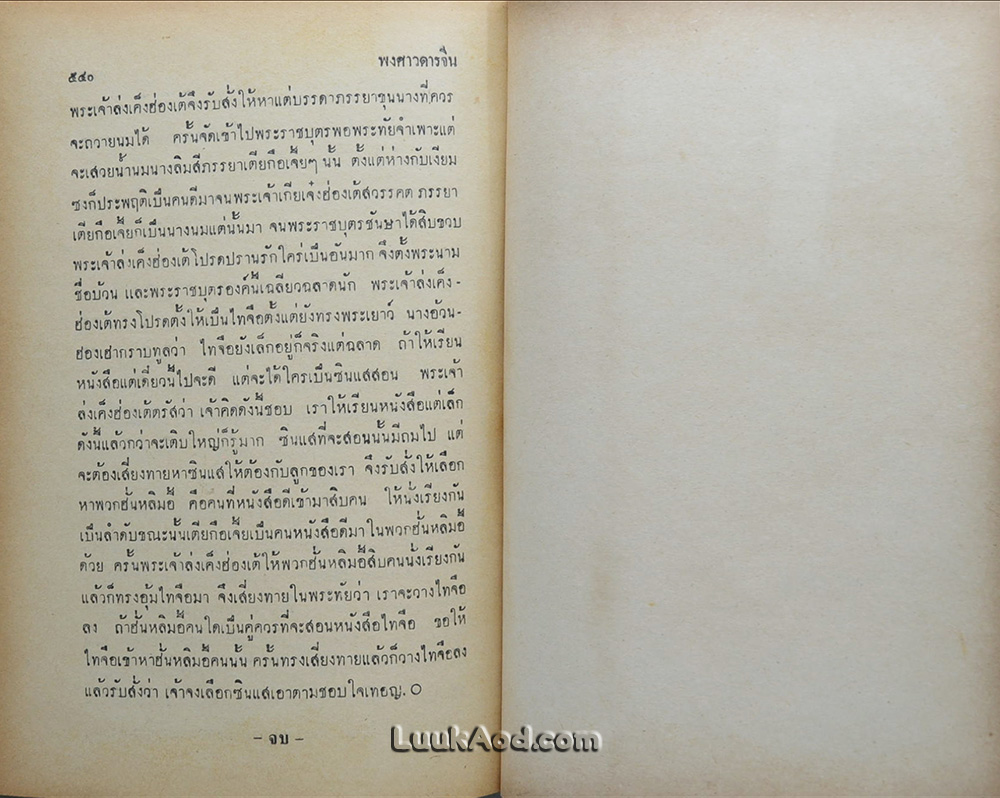 พงศาวดารจีน
๕๔๐
พระเจ้าส่งเค็งฮ่องเต้จึงรับสั่งให้หาแต่บรรดาภรรยาขุนนางที่ควร
จะถวายนมได้ ครั้นจัดเข้าไปพระราชบุตรพอพระทัยจำเพาะแต่
จะเสวยน้ำนมนางลิมสีภรรยาเตียกือเจ๊ยๆ นั้น ตั้งแต่ห่างกับเงียม
ซงก็ประพฤติเป็นคนดีมาจนพระเจ้าเกียเจ๋งฮ่องเต้สวรรคต ภรรยา
เตียกือเจ๊ยก็เป็นนางนมแต่นั้นมา จนพระราชบุตรชันษาได้สิบขวบ
พระเจ้าส่งเค็งฮ่องเต้โปรดปรานรักใคร่เป็นอันมาก จึงตั้งพระนาม
ชื่อบ้วน และพระราชบุตรองค์นี้เฉลียวฉลาดนัก พระเจ้าส่งเค็ง-
ฮ่องเต้ทรงโปรดตั้งให้เป็นไทจือตั้งแต่ยังทรงพระเยาว์ นางอ้วน-
ฮองเฮากราบทูลว่า ไทจือยังเล็กอยู่ก็จริงแต่ฉลาด ถ้าให้เรียน
หนังสือแต่เดี๋ยวนี้ไปจะดี แต่จะได้ใครเป็นซินแสสอน พระเจ้า
ส่งเค็งฮ่องเต้ตรัสว่า เจ้าคิดดังนี้ชอบ เราให้เรียนหนังสือแต่เล็ก
ดังนี้แล้วกว่าจะเติบใหญ่ก็รู้มาก ซินแสที่จะสอนนั้นมีถมไป แต่
จะต้องเสี่ยงทายหาซินแสให้ต้องกับลูกของเรา จึงรับสั่งให้เลือก
หาพวกฮั่นหลิมอี้ คือคนที่หนังสือดีเข้ามาสิบคน ให้นั่งเรียงกัน
เป็นลำดับขณะนั้นเตียกือเจ๊ยเป็นคนหนังสือดีมาในพวกฮั่นหลิมอี้
ด้วย ครั้นพระเจ้าส่งเค็งฮ่องเต้ให้พวกฮั่นหลิมอี้สิบคนนั่งเรียงกัน
แล้วก็ทรงอุ้มไทจือมา จึงเสี่ยงทายในพระทัยว่า เราจะวางไทจือ
ลง ถ้าฮั่นหลิมอี้คนใดเป็นคู่ควรที่จะสอนหนังสือไทจือ ขอให้
ไทจือเข้าหาฮั่นหลิมอี้คนนั้น ครั้นทรงเสี่ยงทายแล้วก็วางไทจือลง
แล้วรับสั่งว่า เจ้าจงเลือกซินแสเอาตามชอบใจเทอญ. O
- จบ -
LuukAod.com